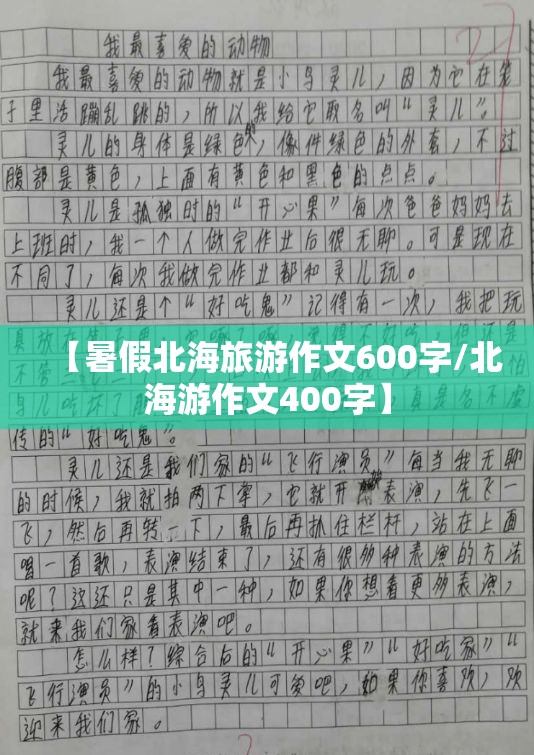 我最喜爱的动物
我最喜爱的动物就是小鸟灵儿，因为它在笼
子里活蹦乱跳的，所以我给它取名叫“灵儿”。
灵儿的身体是绿色的，像件绿色的外套，不过
腹部是黄色，上面有黄色和黑色的点点。
灵儿是孤独时的“开心果”每次爸爸妈妈去
上班时，我一个人做完作业后很无聊。可是现在
不同了，每次我做完作业都和灵儿玩。
灵儿还是个“好吃鬼”记得有一次，我把玩
【暑假北海旅游作文600字/北
海游作文400字】
传的“好吃鬼”。
灵儿还是我们家的“飞行演员”每当我无聊
的时候，我就拍两下掌，它就开始表演，先飞一
飞，然后再转一下，最后再抓住栏杆，站在上面
唱一首歌，表演结束了，还有很多种表演的方法
呢？这还只是其中一种，如果你想看更多表演，
就来我们家看表演吧。
怎么样？综合后的“开心果”“好吃家”“
飞行演员”的小鸟灵儿可爱吧，如果你喜欢，欢
迎来我们家。